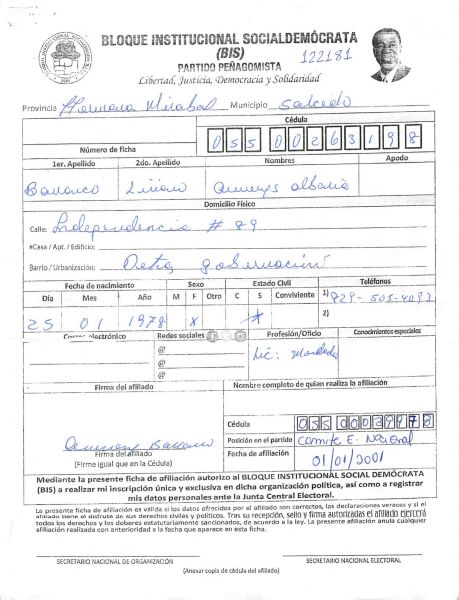 BLOQUE INSTITUCIONAL SOCIALDEMÓCRATA
(BIS)
PARTIDO PEÑAGOMISTA
122181
Libertad, Justicia, Democracia y Solidaridad
Provincia Hermana Mirabal Municipio Salcedo
Cédula
Número de ficha 055 0026319 8
1er. Apellido 2do. Apellido Nombres Apodo
Liriano albania
Domicilio Físico
Calle: Independencia # 89
#Casa / Apt. / Edificio:
Barrio / Urbanización: Detra gobernación
Fecha de nacimiento Sexo Estado Civil Teléfonos
Día Mes Año M F Otro C S Conviviente 1) 829-505-
25 01 1978 X X 2)
Correo electrónico Redes sociales Profesión/Oficio Conocimientos especiales
@ Lic:
@
@
Firma del afiliado Nombre completo de quien realiza la afiliación
Cédula 055 0003997 8
Posición en el partido Comite E. Nacional
Firma del afiliado Fecha de afiliación 01/01/2001
(Firme igual que en la Cédula)
Mediante la presente ficha de afiliación autorizo al BLOQUE INSTITUCIONAL SOCIAL DEMÓCRATA
(BIS) a realizar mi inscripción única y exclusiva en dicha organización política, así como a registrar
mis datos personales ante la Junta Central Electoral.
La presente ficha de afiliación es válida si los datos ofrecidos por el afiliado son correctos, las declaraciones veraces y si el
afiliado tiene el disfrute de sus derechos civiles y políticos. Tras su recepción, sello y firma autorizadas el afiliado ejercerá
todos los derechos y los deberes estatutariamente sancionados, de acuerdo a la ley. La presente afiliación anula cualquier
afiliación realizada con anterioridad a la fecha que aparece en esta ficha.
SECRETARIO NACIONAL DE ORGANIZACIÓN SECRETARIO NACIONAL ELECTORAL
(Anexar copia de cédula del afiliado)